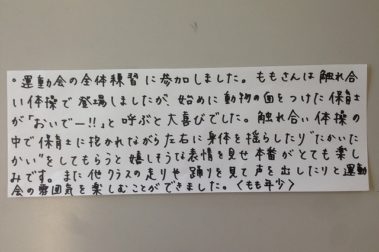 ・運動会の全体練習に参加しました。ももさんは触れ合
い体操で登場しましたが、始めに動物の面をつけた保育士
が「おいでー!!」と呼ぶと大喜びでした。触れ合い体操の
中で保育士に抱かれながら左右に身体を揺らしたり"たかいた
かい"をしてもらうと嬉しそうな表情を見せ本番がとても楽し
みです。また他クラスの走りや踊りを見て声を出したりと運動
会の雰囲気を楽しむことができました。〈もも年少〉